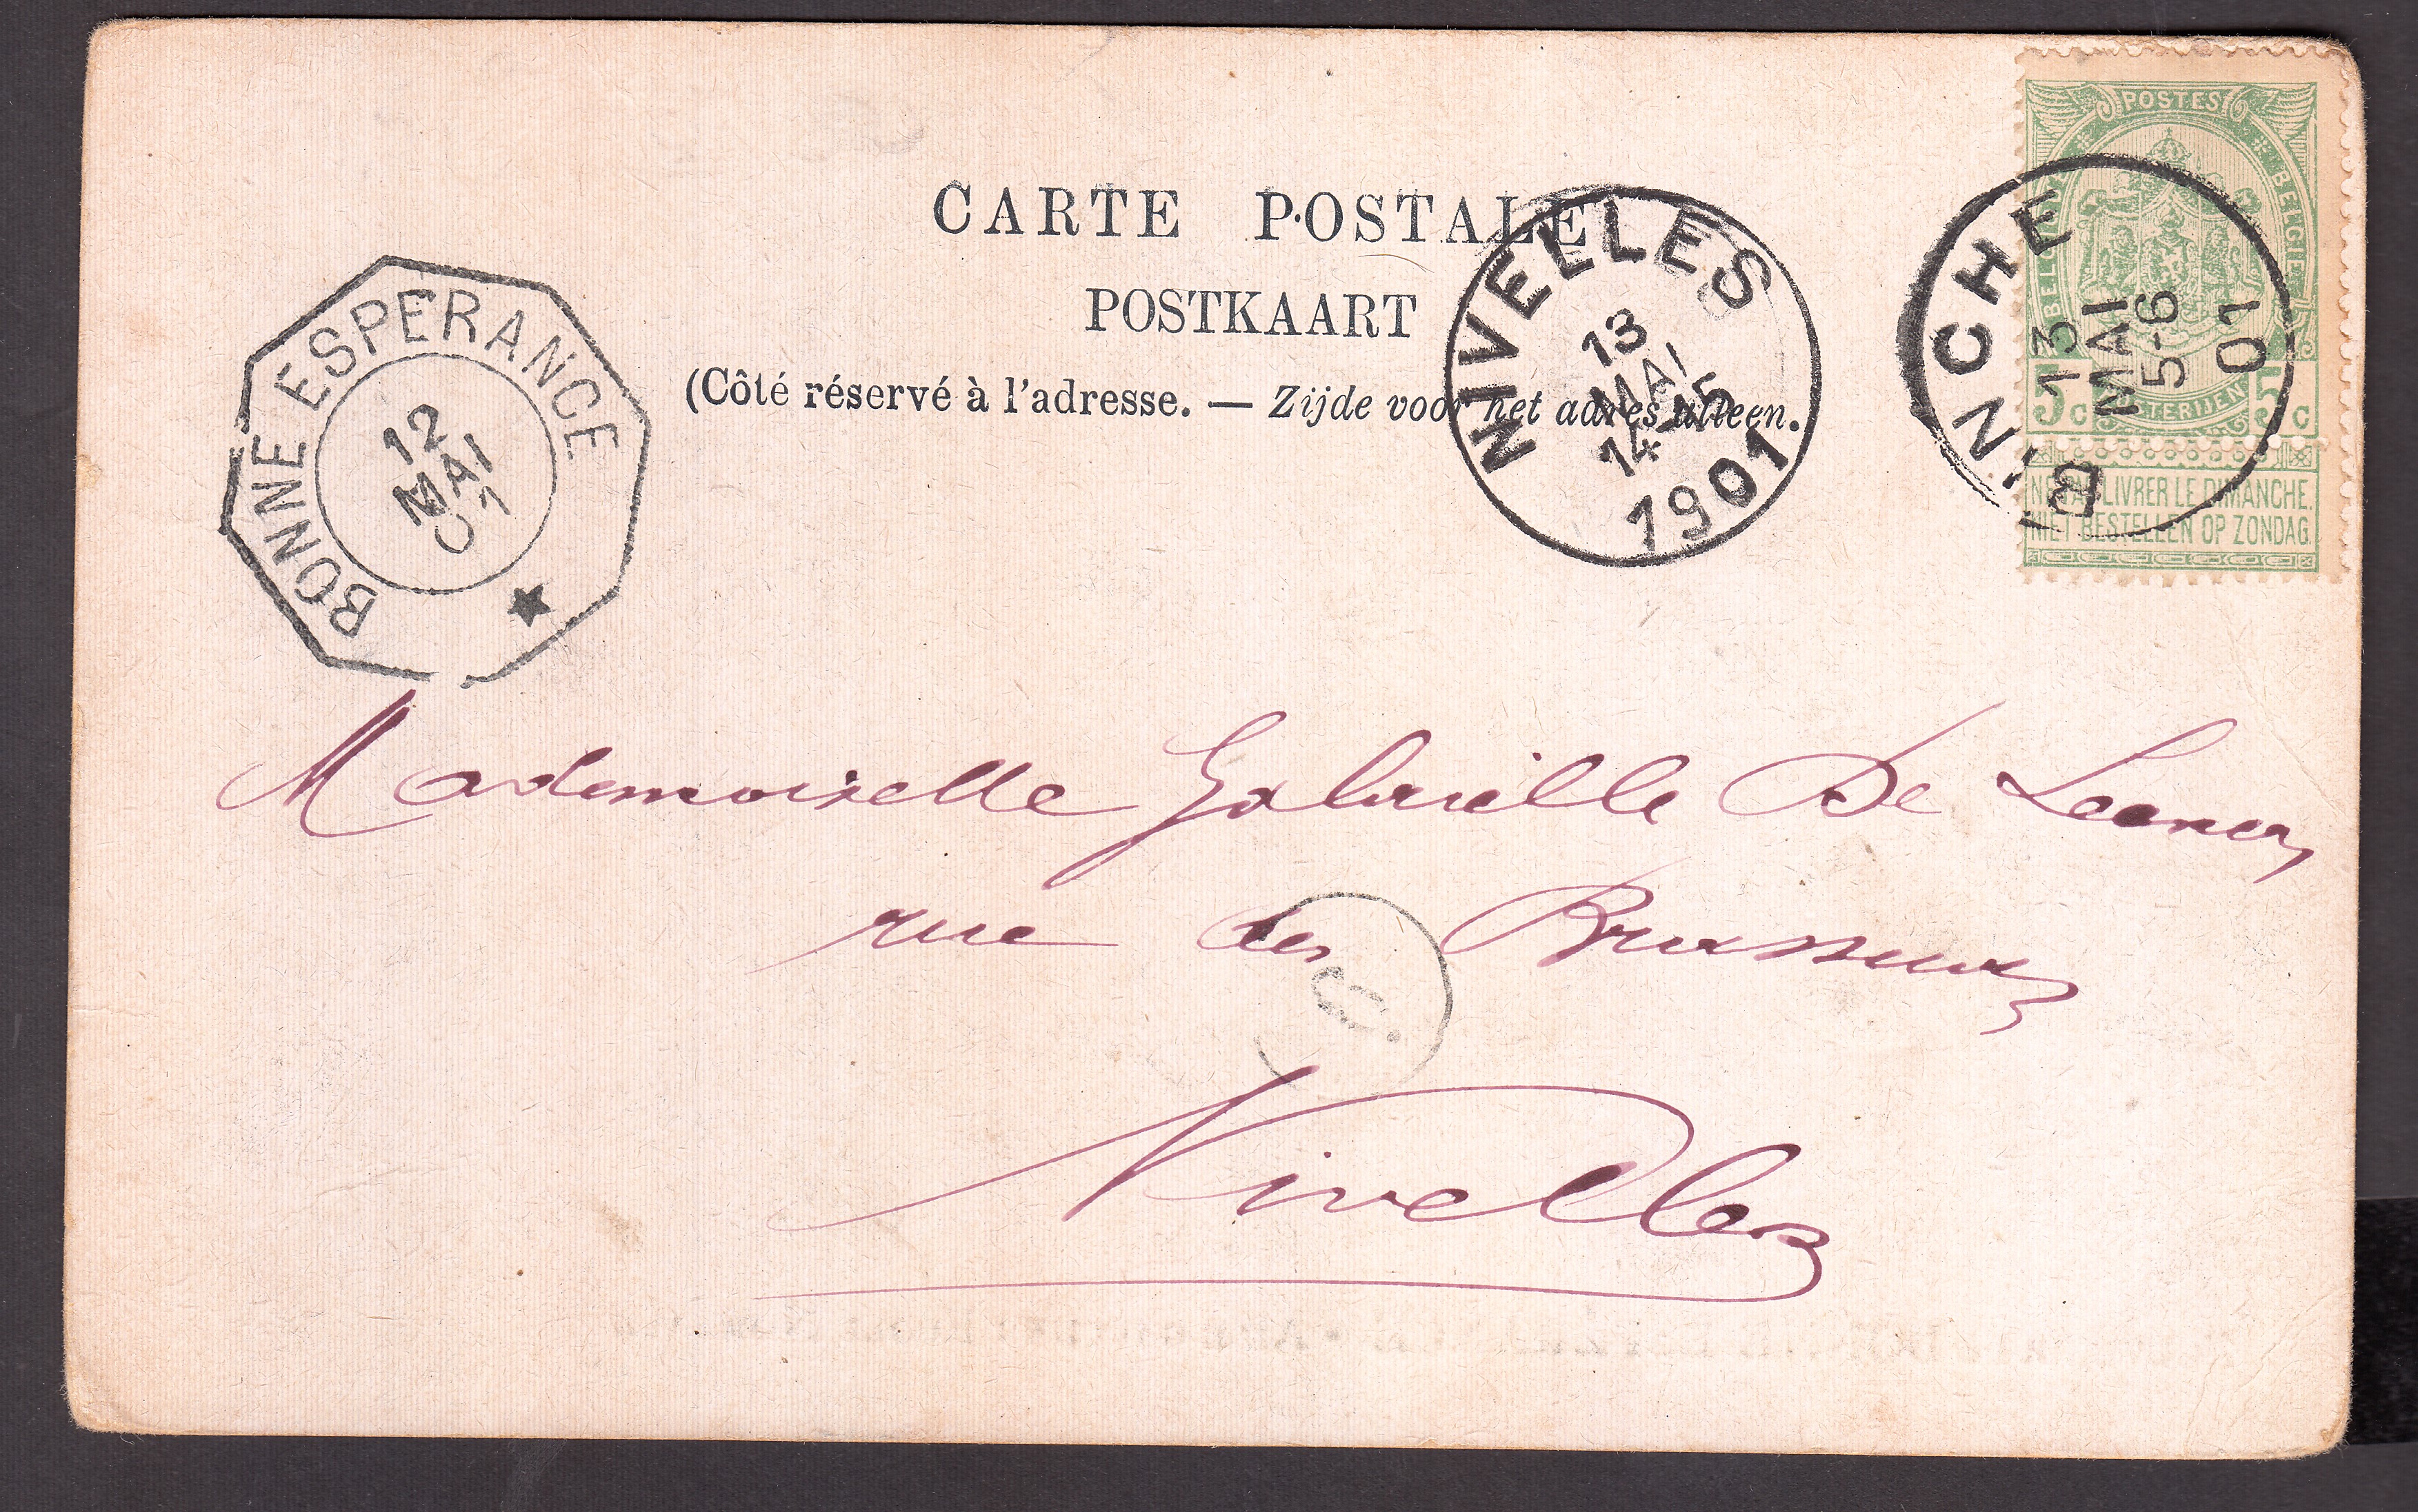 CARTE POSTALE
POSTKAART
(Côté réservé à l'adresse. — Zijde voor het adres alleen.)
BONNE ESPERANCE
12
MAI
01
NIVELLES
13
MAI
14-15
1901
BINCHE
13
MAI
5-6
01
POSTES
BELGIQUE
BELGIE
5c
POSTERIJEN
5c
NE PAS LIVRER LE DIMANCHE.
NIET BESTELLEN OP ZONDAG.
Mademoiselle Gabrielle De
rue des Brasseurs
Nivelles